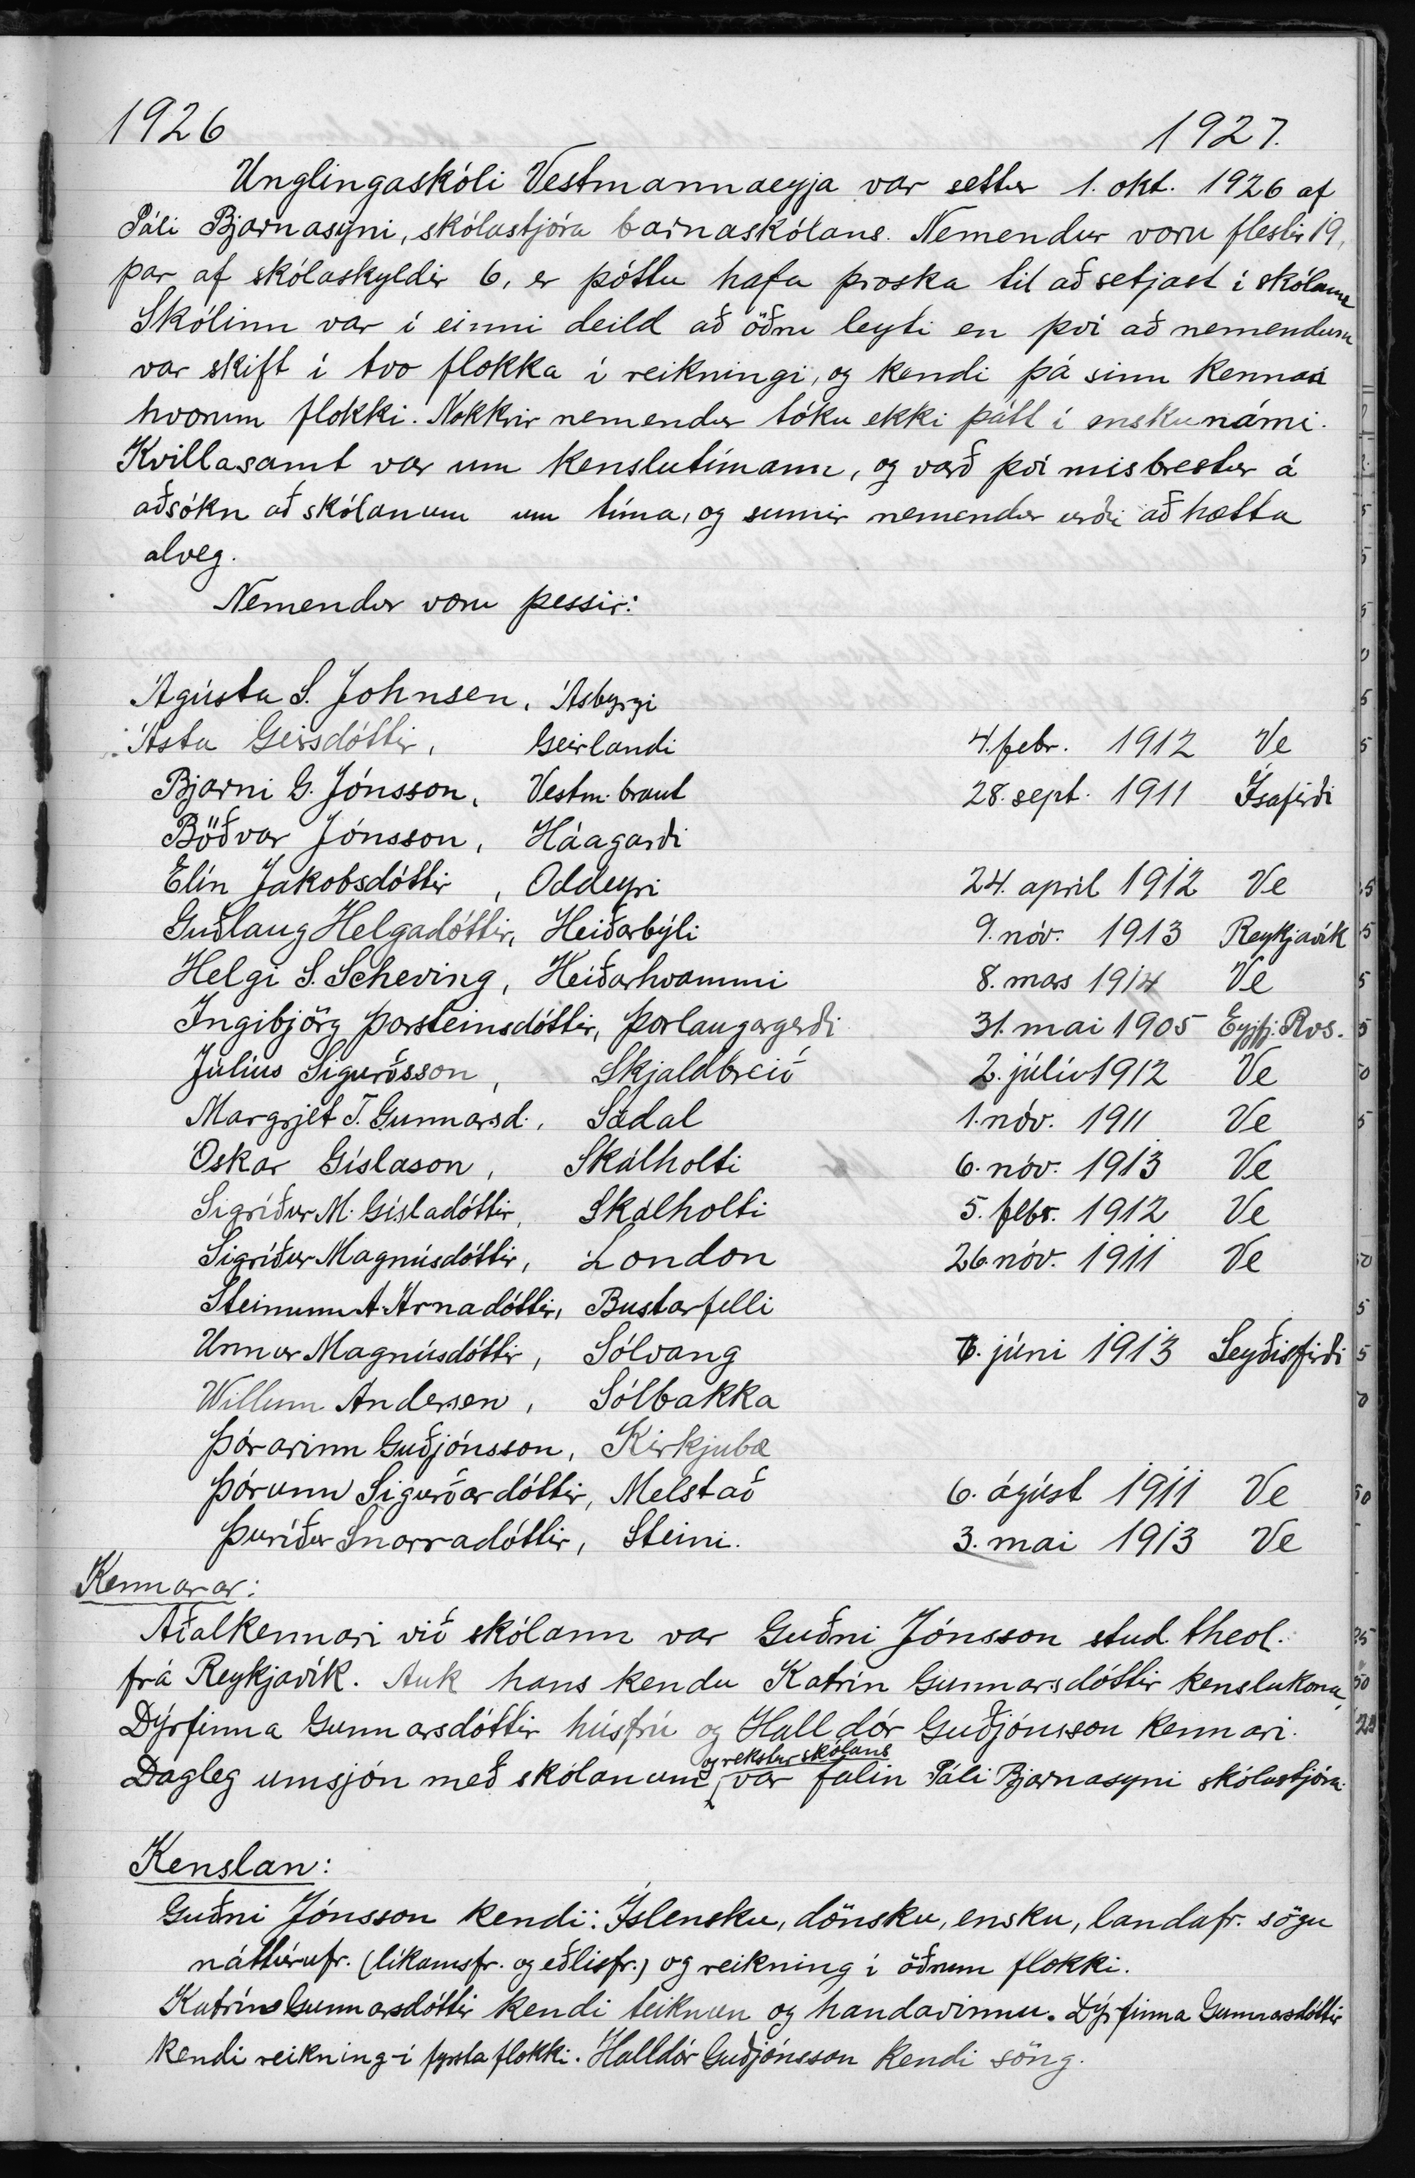 1926 1927.
Unglingaskóli Vestmannaeyja var settur 1. okt. 1926 af
Páli Bjarnasyni, skólastjóra barnaskólans. Nemendur voru flestir 19,
þar af skólaskyldir 6, er þóttu hafa þroska til að setjast í skólann
Skólinn var í einni deild að öðru leyti en því að nemendum
var skift í tvo flokka í reikningi, og kendi þá sinn kennari
hvorum flokki. Nokkrir nemendur tóku ekki þátt í enskunámi.
Kvillasamt var um kenslutímann, og varð því misbrestur á
aðsókn að skólanum um tíma, og sumir nemendur urðu að hætta
alveg.
Nemendur voru þessir:
Ágústa S. Johnsen, Ásbyrgi
Ásta Geirsdóttir, Geirlandi 4. febr. 1912 Ve
Bjarni G. Jónsson, Vestm. braut 28. sept. 1911 Ísafirði
Böðvar Jónsson, Háagarði
Elín Jakobsdóttir, Oddeyri 24. apríl 1912 Ve
Guðlaug Helgadóttir, Heiðarbýli 9. nóv. 1913 Reykjavík
Helgi S. Scheving, Heiðarhvammi 8. mars 1914 Ve
Ingibjörg Þorsteinsdóttir, Þorlaugargerði 31. mai 1905 Eyjfj. Rvs.
Júlíus Sigurðsson, Skjaldbreið 2. júlí 1912 Ve
Margrjet T. Gunnarsd., Sædal 1. nóv. 1911 Ve
Óskar Gíslason, Skálholti 6. nóv. 1913 Ve
Sigríður M. Gísladóttir, Skálholti 5. febr. 1912 Ve
Sigríður Magnúsdóttir, London 26 nóv. 1911 Ve
Steinunn A. Árnadóttir, Bustarfelli
Unnur Magnúsdóttir, Sólvang 6. júní 1913 Seyðisfirði
Willum Andersen, Sólbakka
Þórarinn Guðjónsson, Kirkjubæ
Þórunn Sigurðardóttir, Melstað 6. ágúst 1911 Ve
Þuríður Snorradóttir, Steini. 3. mai 1913 Ve
Kennarar:
Aðalkennari við skólann var Guðni Jónsson stud. theol.
frá Reykjavík. Auk hans kendu Katrín Gunnarsdóttir kenslukona,
Dýrfinna Gunnarsdóttir húsfrú og Halldór Guðjónsson kennari.
og rekstur skólans
Dagleg umsjón með skólanum var falin Páli Bjarnasyni skólastjóra.
Kenslan:
Guðni Jónsson kendi: Íslensku, dönsku, ensku, landafr. sögu
náttúrufr. (líkamsfr. og eðlisfr.) og reikning í öðrum flokki.
Katrín Gunnarsdóttir kendi teiknun og handavinnu. Dýrfinna Gunnarsdóttir
kendi reikning í fyrsta flokki. Halldór Guðjónsson kendi söng.